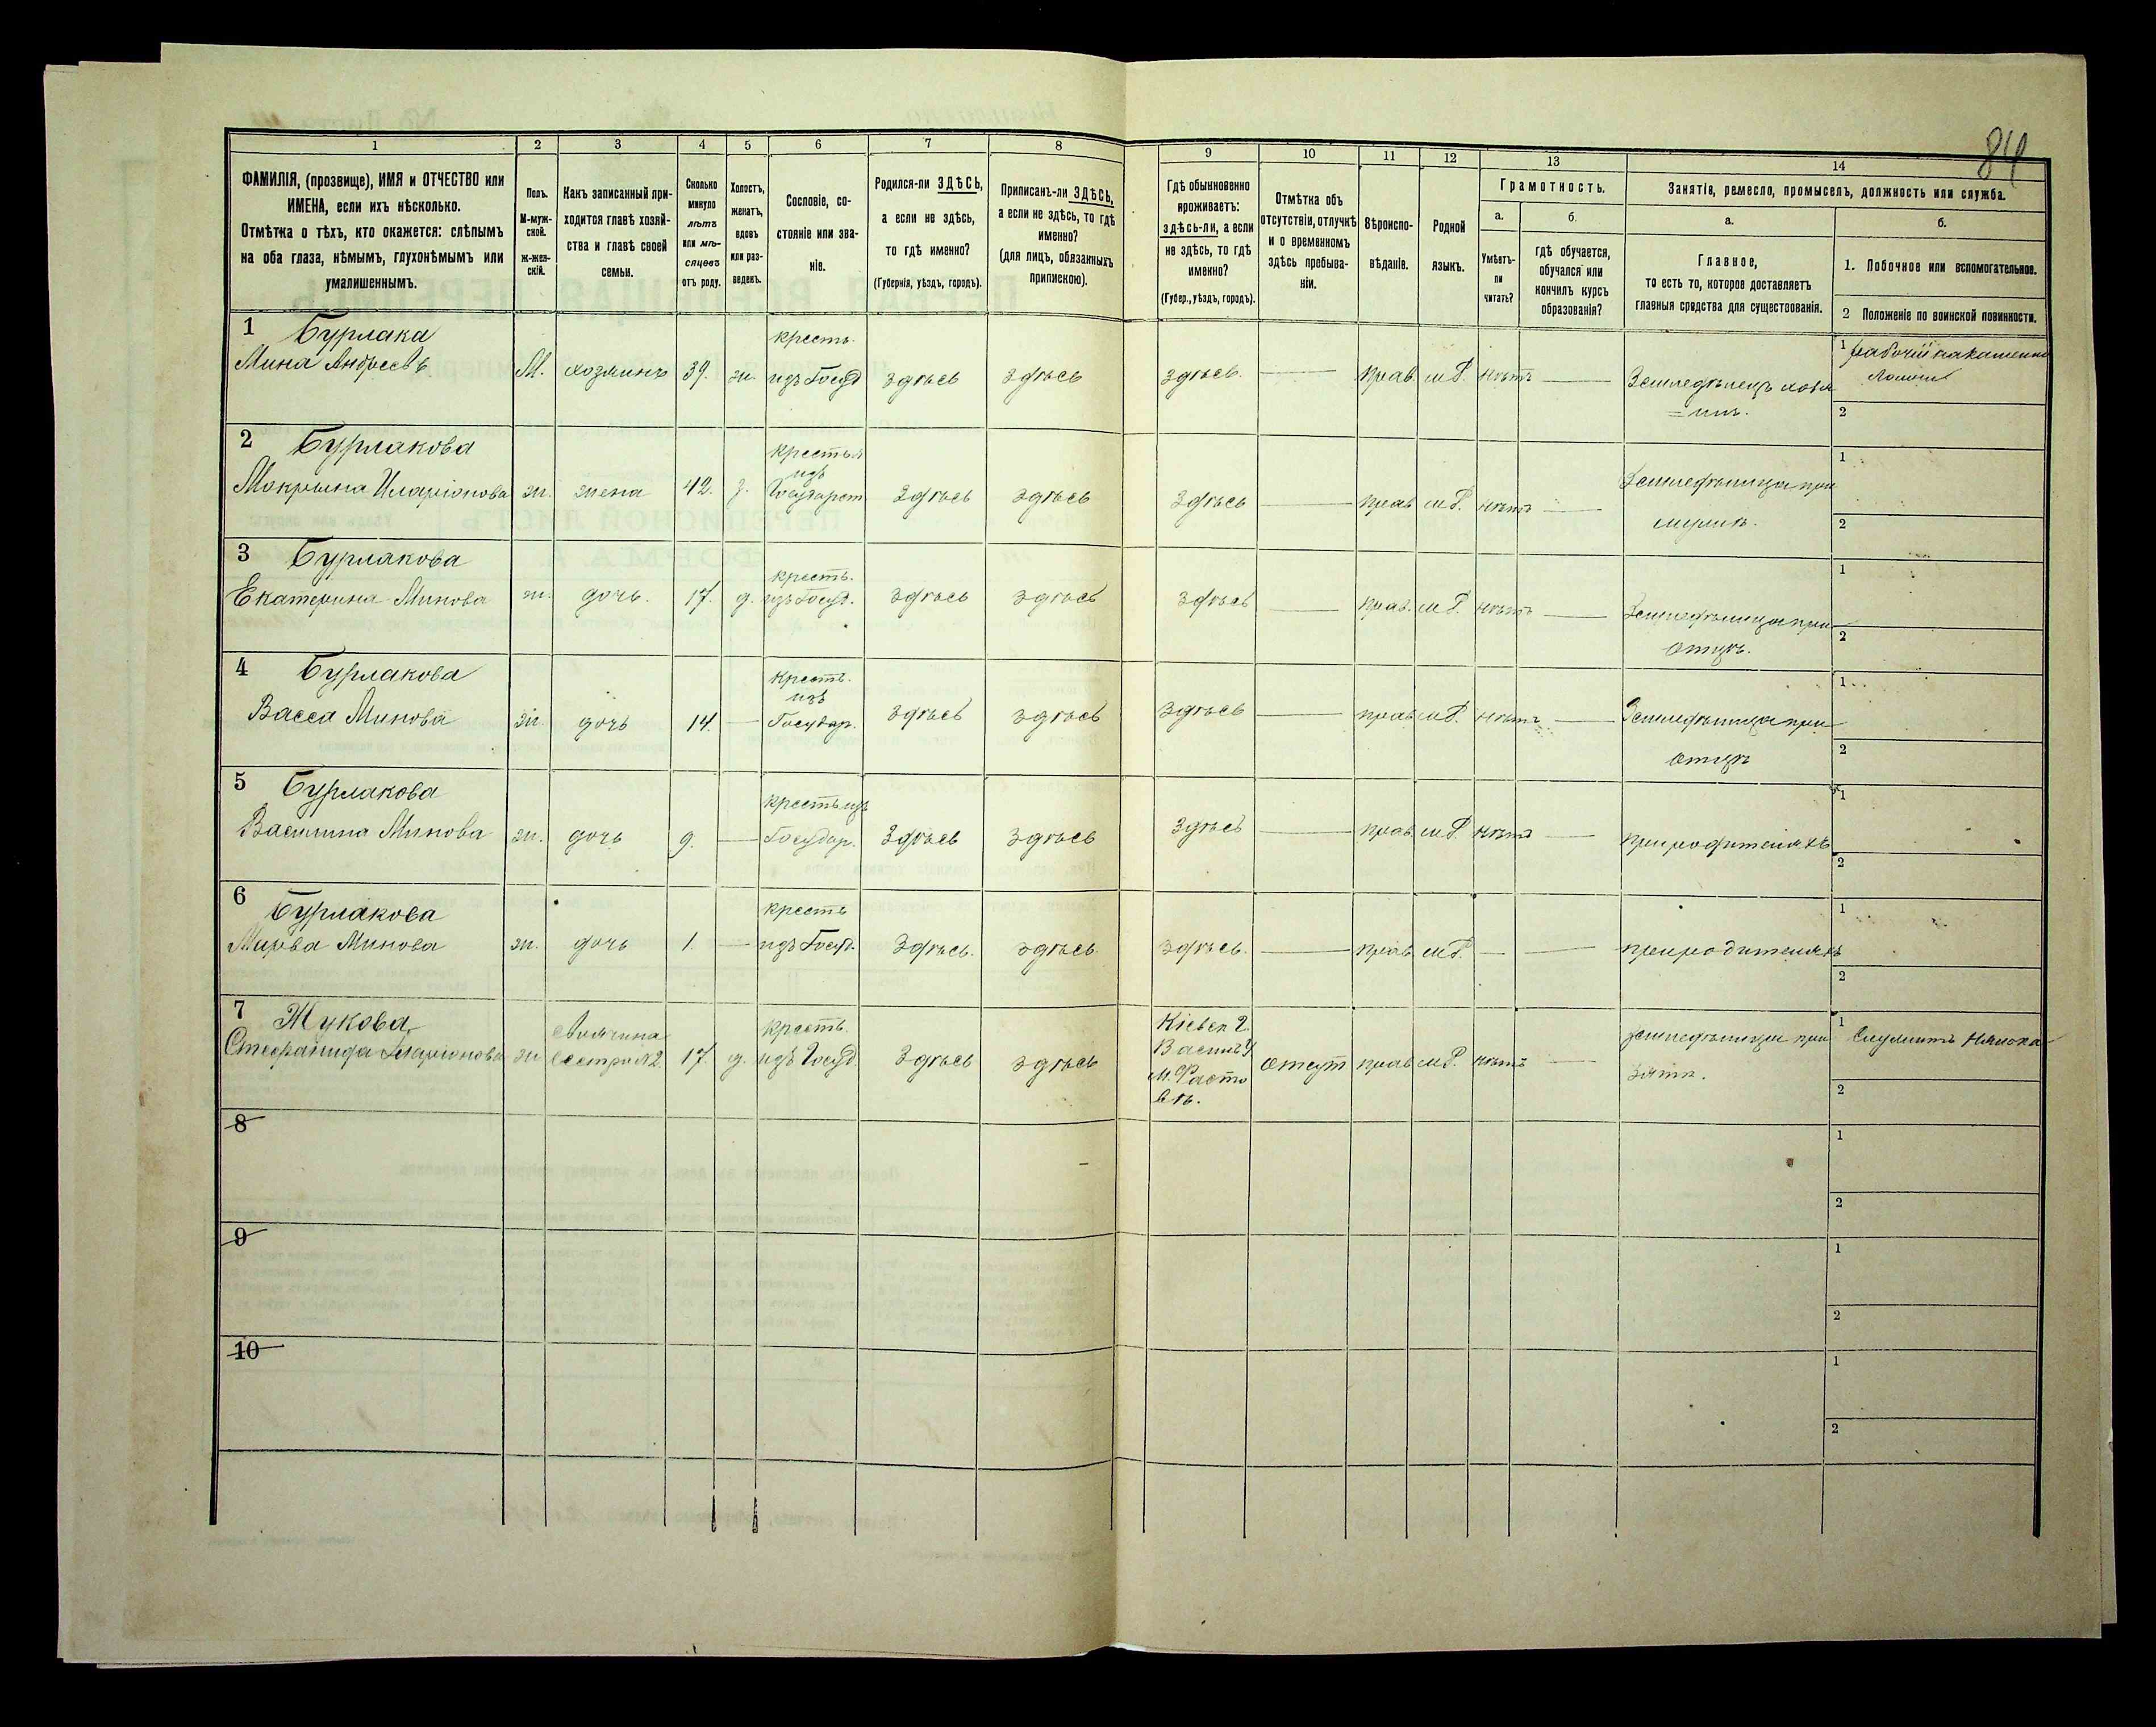 84
1 2 3 4 5 6 7 8 9 10 11 12 13 14
ФАМИЛІЯ, (прозвище), ИМЯ и ОТЧЕСТВО или
ИМЕНА, если ихъ нѣсколько.
Отмѣтка о тѣхъ, кто окажется: слѣпымъ
на оба глаза, нѣмымъ, глухонѣмымъ или
умалишеннымъ.
Полъ.
М-муж-
ской.
ж-жен-
скій.
Какъ записанный при-
ходится главѣ хозяй-
ства и главѣ своей
семьи.
Сколько
минуло
лѣтъ
или мѣ-
сяцевъ
отъ роду.
Холостъ,
женатъ,
вдовъ
или раз-
веденъ.
Сословіе, со-
стояніе или зва-
ніе.
Родился-ли ЗДѢСЬ,
а если не здѣсь,
то гдѣ именно?
(Губернія, уѣздъ, городъ).
Приписанъ-ли ЗДѢСЬ,
а если не здѣсь, то гдѣ
именно?
(для лицъ, обязанныхъ
припискою).
Гдѣ обыкновенно
проживаетъ:
здѣсь-ли, а если
не здѣсь, то гдѣ
именно?
(Губер., уѣздъ, городъ).
Отмѣтка объ
отсутствіи, отлучкѣ
и о временномъ
здѣсь пребыва-
ніи.
Вѣроиспо-
вѣданіе.
Родной
языкъ.
Грамотность.
а.
Умѣетъ-
ли
читать?
б.
гдѣ обучается,
обучался или
кончилъ курсъ
образованія?
Занятіе, ремесло, промыселъ, должность или служба.
а.
Главное,
то есть то, которое доставляетъ
главныя средства для существованія.
б.
1. Побочное или вспомогательное.
2 Положеніе по воинской повинности.
1 Бурлака
Мина Андреевъ
М. хозяинъ 39. ж.
кресть.
изъ Госуд
здѣсь здѣсь здѣсь. — прав. мР. нѣтъ —
Земледѣлецъ хозя
=инъ.
1 рабочій на каменно
2
2 Бурлакова
Мокрына Иларіонова
ж. жена 42. з.
крестья
изъ
Государст.
здѣсь здѣсь здѣсь — прав мР. нѣтъ —
Земледѣлица при
мужѣ.
1
2
3 Бурлакова
Екатерина Минова
ж. дочь. 17. д.
кресть.
изъ Госуд.
здѣсь здѣсь здѣсь — прав. мР. нѣтъ —
Земледѣлица при
отцѣ.
1
2
4 Бурлакова
Васса Минова
ж дочь 14. —
кресть.
изъ
Государ.
здѣсь здѣсь здѣсь — прав мР. нѣтъ —
Земледѣлица при
отцѣ
1
2
5 Бурлакова
Василина Минова
ж. дочь 9. —
кресть изъ
Государ.
здѣсь здѣсь здѣсь — прав мР нѣтъ —
при родителяхъ
1
2
6 Бурлакова
Минова
ж. дочь 1. —
кресть
изъ Госуд.
здѣсь. здѣсь. здѣсь. — прав. мР. — —
при родителяхъ
1
2
7 Жукова
Стефанида Иларіонова
ж
сестра №2.
17. д.
кресть.
изъ Госуд.
здѣсь здѣсь
Кіевск г.
Васильк у
м. Фасто
вѣ.
отсут прав мР. нѣтъ —
земледѣлица при
зятѣ.
1 Служитъ нянька
2
8
1
2
9
1
2
10
1
2